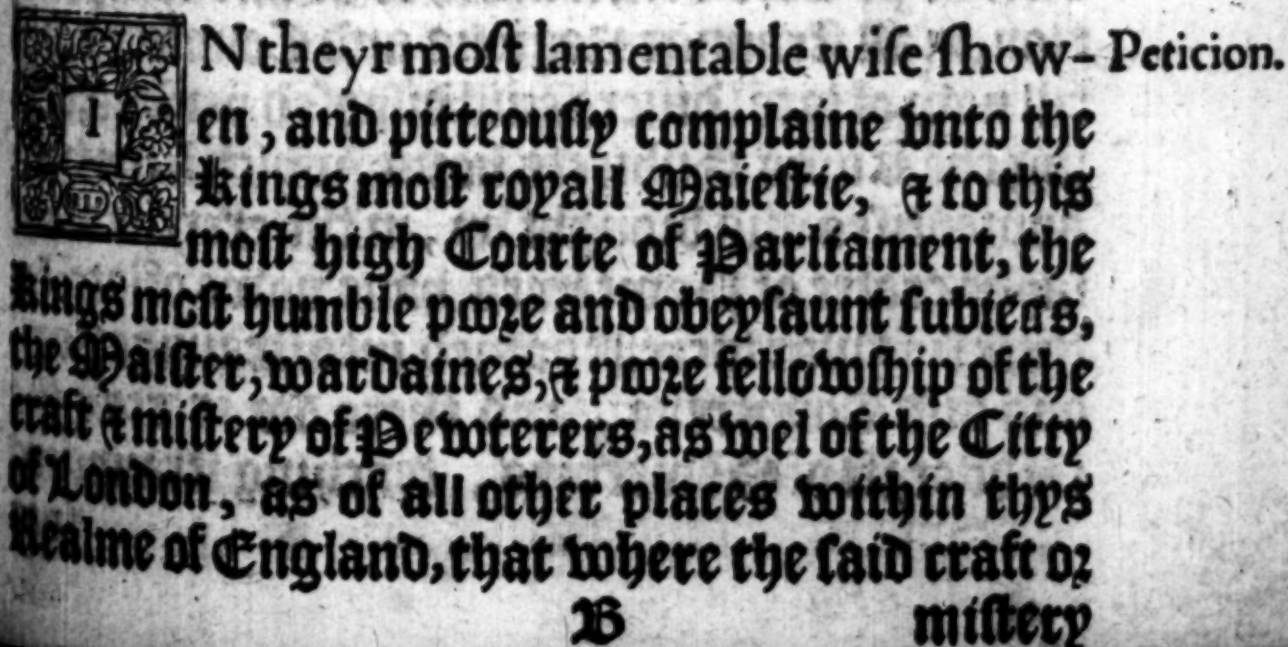 IN theyr moſt lamentable wiſe ſhow- Peticion.
en, and pitteouſly complaine vnto the
kings moſt royall Maieſtie, & to this
moſt high Courte of Parliament, the
kings moſt humble poꝛe and obeyſaunt ſubiects,
the Maiſter, wardaines, & pooꝛe fellowſhip of the
craft & miſtery of Pewterers, as wel of the Citty
of London, as of all other places within thys
Realme of England, that where the ſaid craft oꝛ
B miſtery